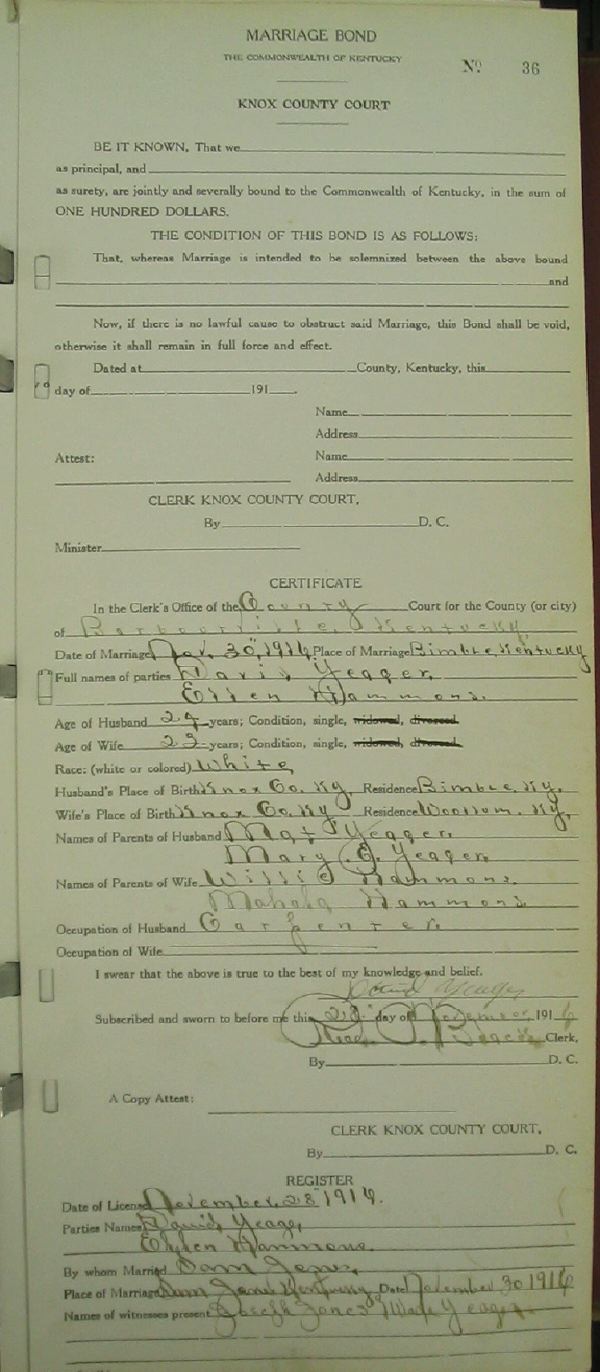 MARRIAGE BOND
THE COMMONWEALTH OF KENTUCKY
No. 36
KNOX COUNTY COURT
BE IT KNOWN, That we
as principal, and
as surety, are jointly and severally bound to the Commonwealth of Kentucky, in the sum of
ONE HUNDRED DOLLARS.
THE CONDITION OF THIS BOND IS AS FOLLOWS:
That, whereas Marriage is intended to be solemnized between the above bound
and
Now, if there is no lawful cause to obstruct said Marriage, this Bond shall be void,
otherwise it shall remain in full force and effect.
Dated at County, Kentucky, this
day of 191 .
Name
Address
Attest: Name
Address
CLERK KNOX COUNTY COURT.
By D. C.
Minister
CERTIFICATE
In the Clerk's Office of the County Court for the County (or city)
of Barbourville, Kentucky.
Date of Marriage Nov. 30, 1916 Place of Marriage Bimble, Kentucky
Full names of parties Yeager,
Ellen Hammons.
Age of Husband years; Condition, single, widowed, divorced.
Age of Wife 23 years; Condition, single, widowed, divorced.
Race: (white or colored) White
Husband's Place of Birth Knox Co. Ky. Residence Bimble, Ky.
Wife's Place of Birth Knox Co. Ky Residence Woollum. Ky.
Names of Parents of Husband Mat Yeager.
Mary E. Yeager.
Names of Parents of Wife Willie Hammons.
Mahala Hammons.
Occupation of Husband Carpenter.
Occupation of Wife
I swear that the above is true to the best of my knowledge and belief.
David Yeager
Subscribed and sworn to before me this 28 day of November, 1916
Clerk,
By D. C.
A Copy Attest:
CLERK KNOX COUNTY COURT.
By D. C.
REGISTER
Date of License November, 28 1916.
Parties Names David Yeager
Ellen Hammons.
By whom Married Sam Jones
Place of Marriage Sam Jones Kentucky Date November 30 1916
Names of witnesses present Joseph Jones Yeager